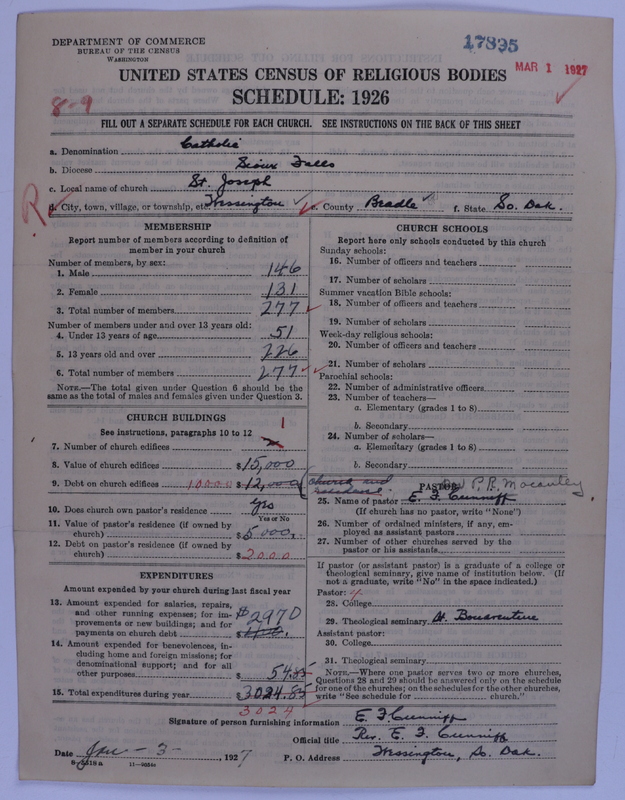 DEPARTMENT OF COMMERCE
BUREAU OF THE CENSUS
WASHINGTON
17895
MAR 1 1927
UNITED STATES CENSUS OF RELIGIOUS BODIES
SCHEDULE: 1926
8-9
FILL OUT A SEPARATE SCHEDULE FOR EACH CHURCH. SEE INSTRUCTIONS ON THE BACK OF THIS SHEET
a. Denomination Catholic
b. Diocese Sioux Falls
c. Local name of church St. Joseph
R
d. City, town, village, or township, etc. Wessington e. County Beadle f. State So. Dak.
MEMBERSHIP
Report number of members according to definition of
member in your church
Number of members, by sex:
1. Male 146
2. Female 131
3. Total number of members 277
Number of members under and over 13 years old:
4. Under 13 years of age 51
5. 13 years old and over 226
6. Total number of members 277
NOTE.—The total given under Question 6 should be
the same as the total of males and females given under Question 3.
CHURCH BUILDINGS
See instructions, paragraphs 10 to 12
7. Number of church edifices 1
8. Value of church edifices $15,000
9. Debt on church edifices 10000 $12,000 (church and residence)
10. Does church own pastor's residence yes
Yes or No
11. Value of pastor's residence (if owned by
church) $5000.
12. Debt on pastor's residence (if owned by
church) $2000
EXPENDITURES
Amount expended by your church during last fiscal year
13. Amount expended for salaries, repairs,
and other running expenses; for im-
provements or new buildings; and for
payments on church debt $2970
14. Amount expended for benevolences, in-
cluding home and foreign missions; for
denominational support; and for all
other purposes $54.85
15. Total expenditures during year $3024.85
3024
CHURCH SCHOOLS
Report here only schools conducted by this church
Sunday schools:
16. Number of officers and teachers
17. Number of scholars
Summer vacation Bible schools:
18. Number of officers and teachers
19. Number of scholars
Week-day religious schools:
20. Number of officers and teachers
21. Number of scholars
Parochial schools:
22. Number of administrative officers
23. Number of teachers—
a. Elementary (grades 1 to 8)
b. Secondary
24. Number of scholars—
a. Elementary (grades 1 to 8)
b. Secondary
PASTOR P. R. Macauley
25. Name of pastor E. F. Cunniff
(If church has no pastor, write "None")
26. Number of ordained ministers, if any, em-
ployed as assistant pastors
27. Number of other churches served by the
pastor or his assistants
If pastor (or assistant pastor) is a graduate of a college or
theological seminary, give name of institution below. (If
not a graduate, write "No" in the space indicated.)
Pastor:
28. College
29. Theological seminary St. Bonaventure
Assistant pastor:
30. College
31. Theological seminary
NOTE.—Where one pastor serves two or more churches,
Questions 28 and 29 should be answered only on the schedule
for one of the churches; on the schedules for the other churches,
write "See schedule for church."
Signature of person furnishing information E. F Cunniff
Official title Rev. E. F Cunniff
Date Jan - 3 - , 1927 P. O. Address Wessington, So. Dak.
8-5318a 11-9024a